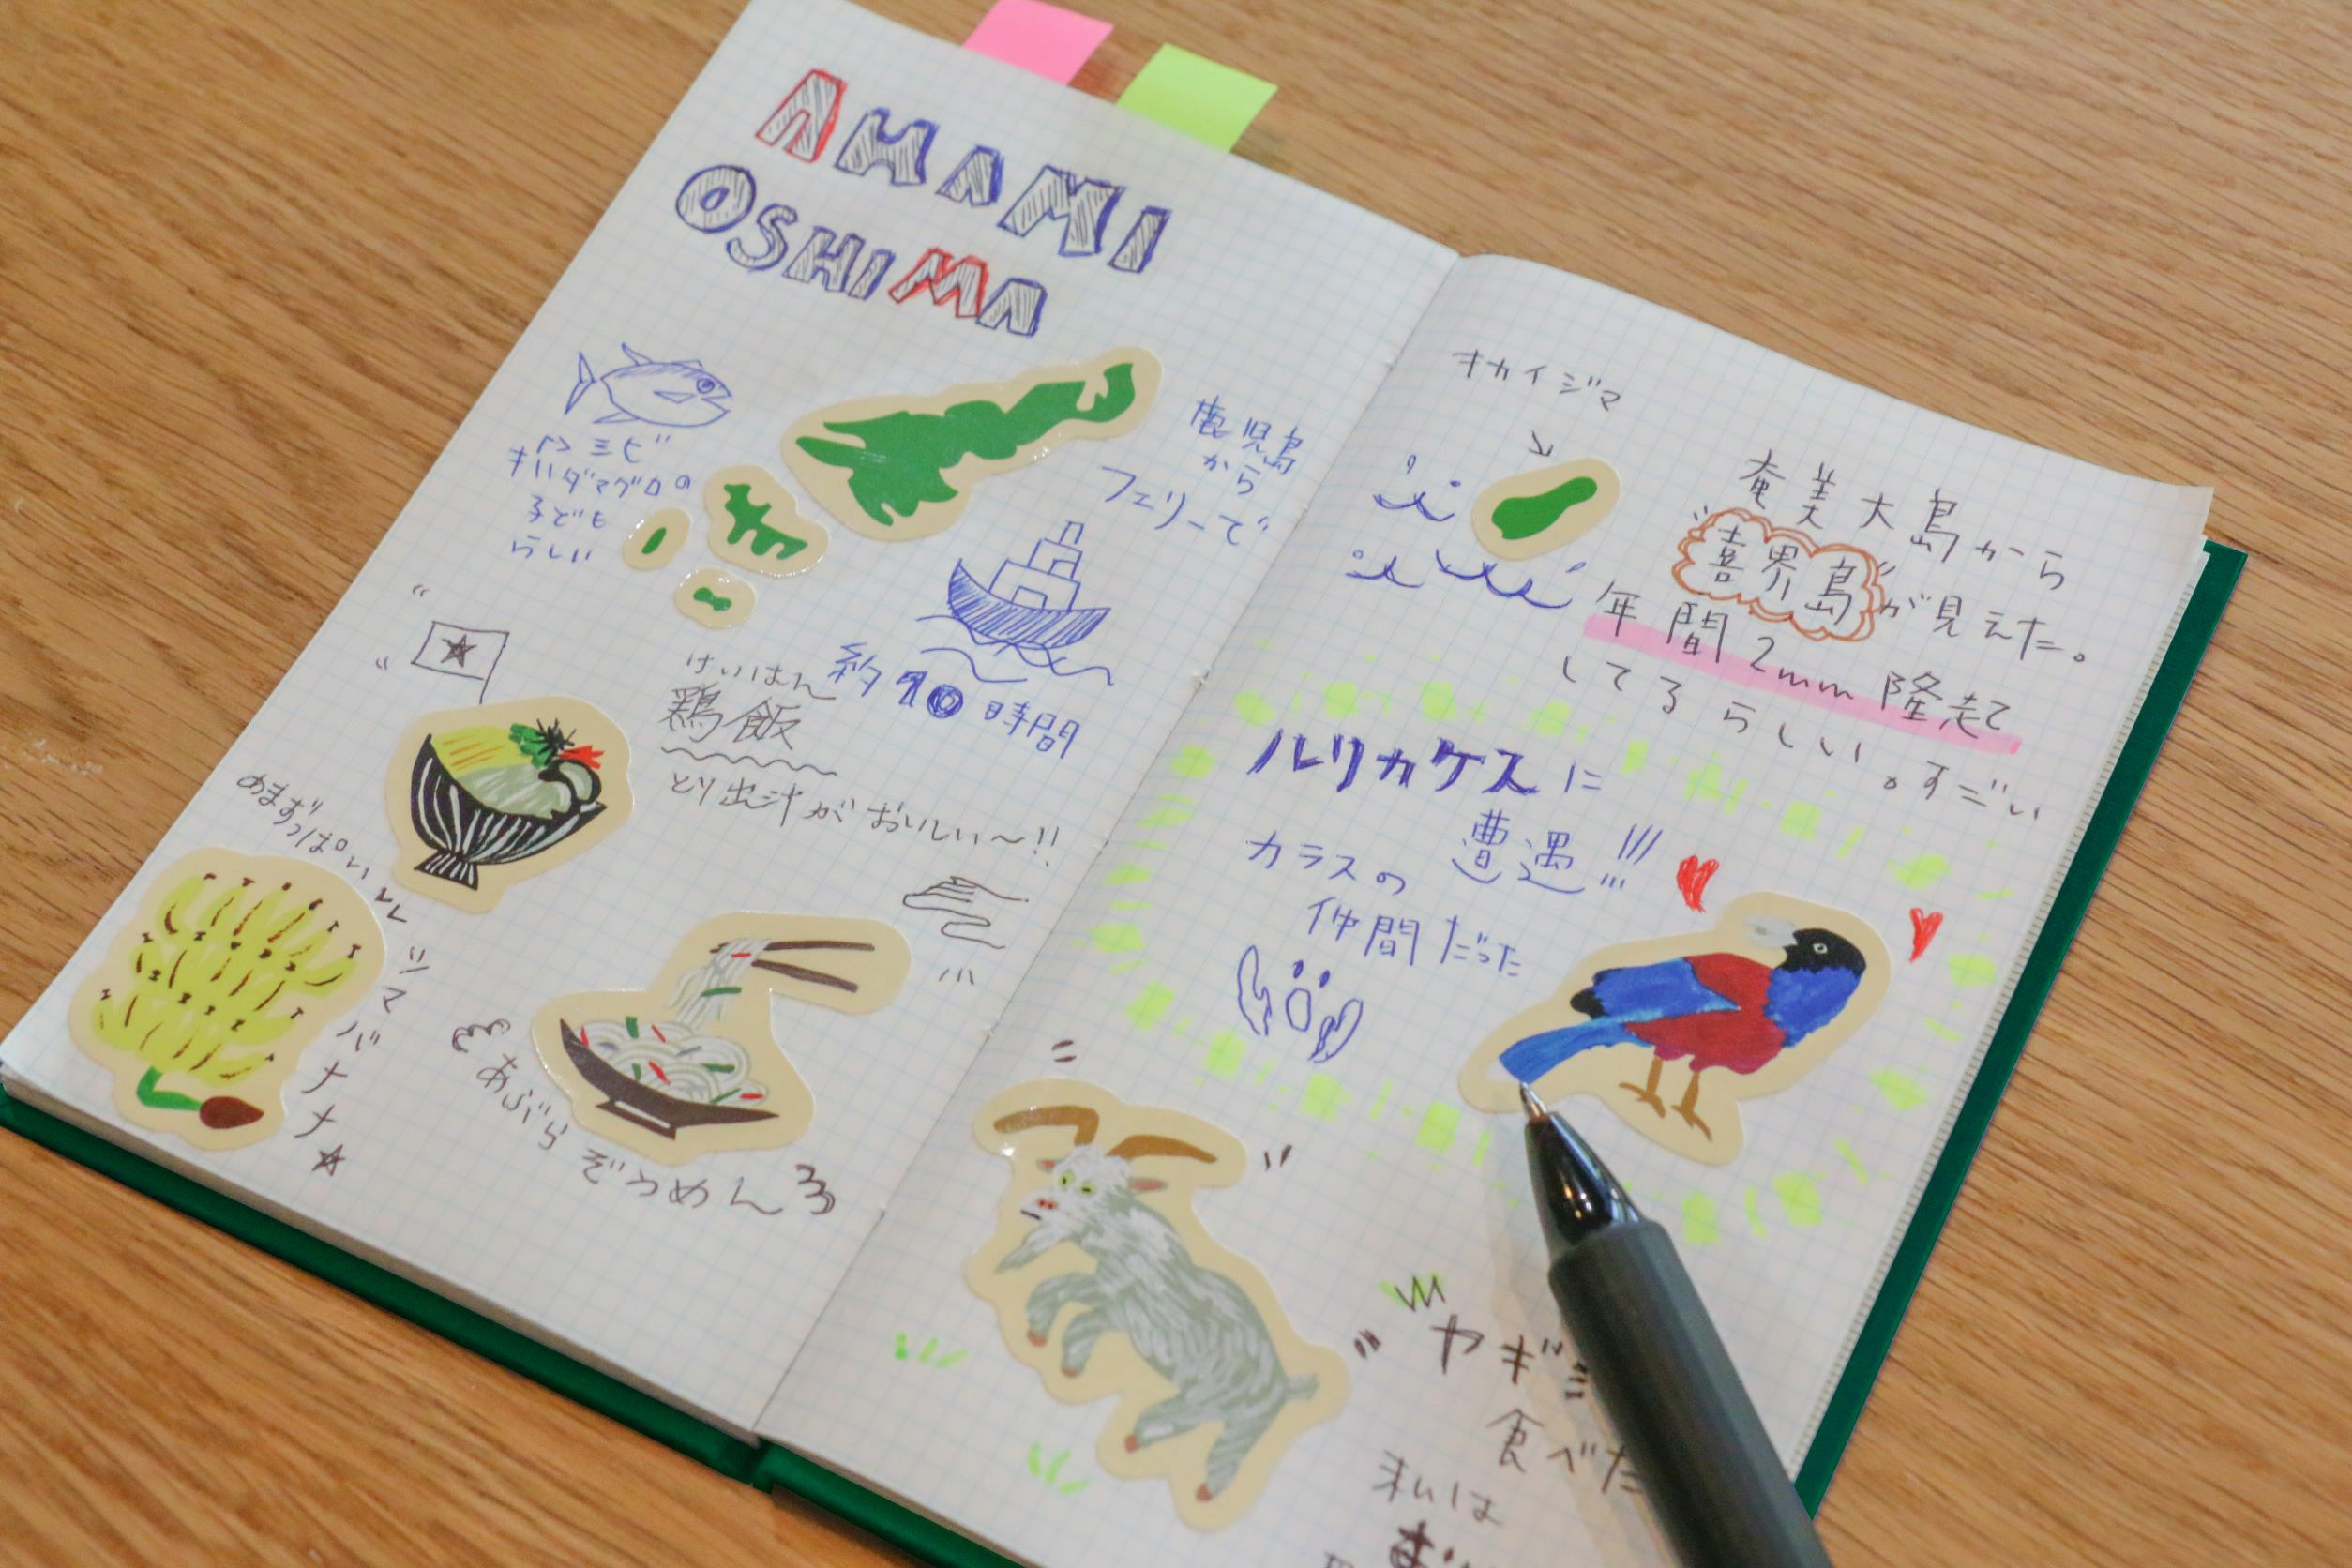 AMAMI
OSHIMA
シビ
キハダマグロの
子ども
らしい
鹿児島
から
フェリーで
約10時間
けいはん
鶏飯
とり出汁がおいしい〜!!
あまずっぱい
シマバナナ☆
あぶらぞうめん
キカイジマ
奄美大島から
"喜界島"が見えた。
年間2mm隆起
してるらしい。すごい
ルリカケスに
遭遇!!!
カラスの
仲間だった
ヤギ
食べた
私は